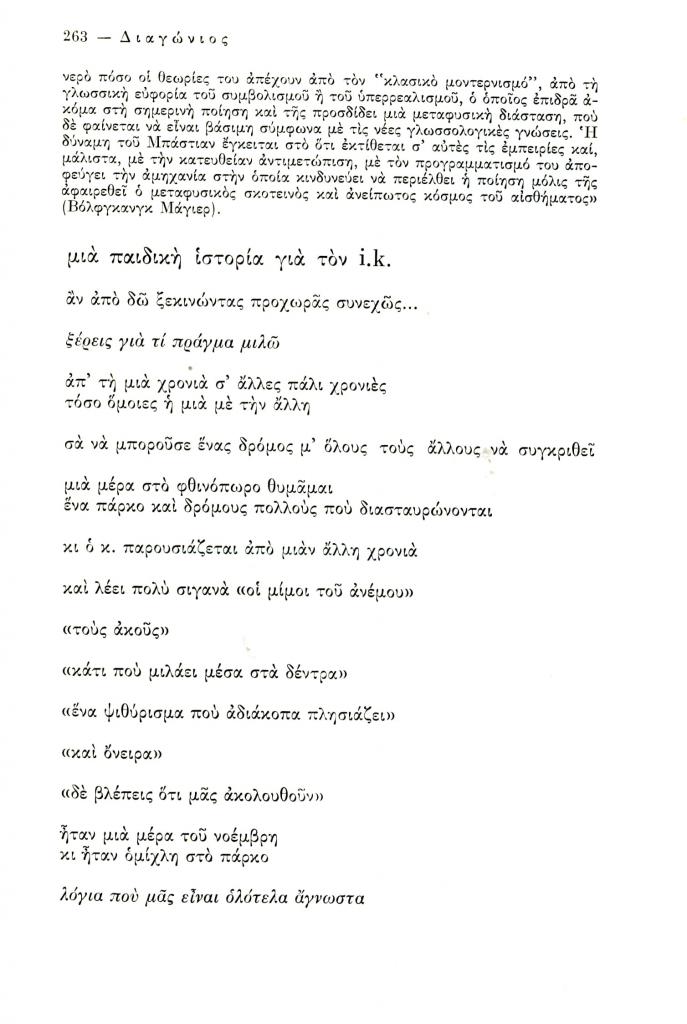 263 — Διαγώνιος
νερὸ πόσο οἱ θεωρίες του ἀπέχουν ἀπὸ τὸν "κλασικὸ μοντερνισμό", ἀπὸ τὴ
γλωσσικὴ εὐφορία τοῦ συμβολισμοῦ ἢ τοῦ ὑπερρεαλισμοῦ, ὁ ὁποῖος ἐπιδρᾶ ἀ-
κόμα στὴ σημερινὴ ποίηση καὶ τῆς προσδίδει μιὰ μεταφυσικὴ διάσταση, ποὺ
δὲ φαίνεται νὰ εἶναι βάσιμη σύμφωνα μὲ τὶς νέες γλωσσολογικὲς γνώσεις. Ἡ
δύναμη τοῦ Μπάστιαν ἔγκειται στὸ ὅτι ἐκτίθεται σ' αὐτὲς τὶς ἐμπειρίες καί,
μάλιστα, μὲ τὴν κατευθείαν ἀντιμετώπιση, μὲ τὸν προγραμματισμό του ἀπο-
φεύγει τὴν ἀμηχανία στὴν ὁποία κινδυνεύει νὰ περιέλθει ἡ ποίηση μόλις τῆς
ἀφαιρεθεῖ ὁ μεταφυσικὸς σκοτεινὸς καὶ ἀνείπωτος κόσμος τοῦ αἰσθήματος»
(Βόλφγκανγκ Μάγιερ).
μιὰ παιδικὴ ἱστορία γιὰ τὸν i.k.
ἂν ἀπὸ δῶ ξεκινώντας προχωρᾶς συνεχῶς...
ξέρεις γιὰ τί πράγμα μιλῶ
ἀπ' τὴ μιὰ χρονιὰ σ' ἄλλες πάλι χρονιὲς
τόσο ὅμοιες ἡ μιὰ μὲ τὴν ἄλλη
σὰ νὰ μποροῦσε ἕνας δρόμος μ' ὅλους τοὺς ἄλλους νὰ συγκριθεῖ
μιὰ μέρα στὸ φθινόπωρο θυμᾶμαι
ἕνα πάρκο καὶ δρόμους πολλοὺς ποὺ διασταυρώνονται
κι ὁ κ. παρουσιάζεται ἀπὸ μιὰν ἄλλη χρονιὰ
καὶ λέει πολὺ σιγανὰ «οἱ μίμοι τοῦ ἀνέμου»
«τοὺς ἀκοῦς»
«κάτι ποὺ μιλάει μέσα στὰ δέντρα»
«ἕνα ψιθύρισμα ποὺ ἀδιάκοπα πλησιάζει»
«καὶ ὄνειρα»
«δὲ βλέπεις ὅτι μᾶς ἀκολουθοῦν»
ἦταν μιὰ μέρα τοῦ νοέμβρη
κι ἦταν ὁμίχλη στὸ πάρκο
λόγια ποὺ μᾶς εἶναι ὁλότελα ἄγνωστα